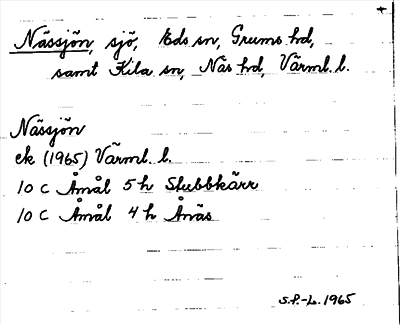 +
Nässjön, sjö, Eds sn, Grums hd,
samt Kila sn, Näs hd, Värml. l.
Nässjön
ek (1965) Värml. l.
10 C Åmål 5 h Stubbkärr
10 C Åmål 4 h Ånäs
S.P.-L. 1965